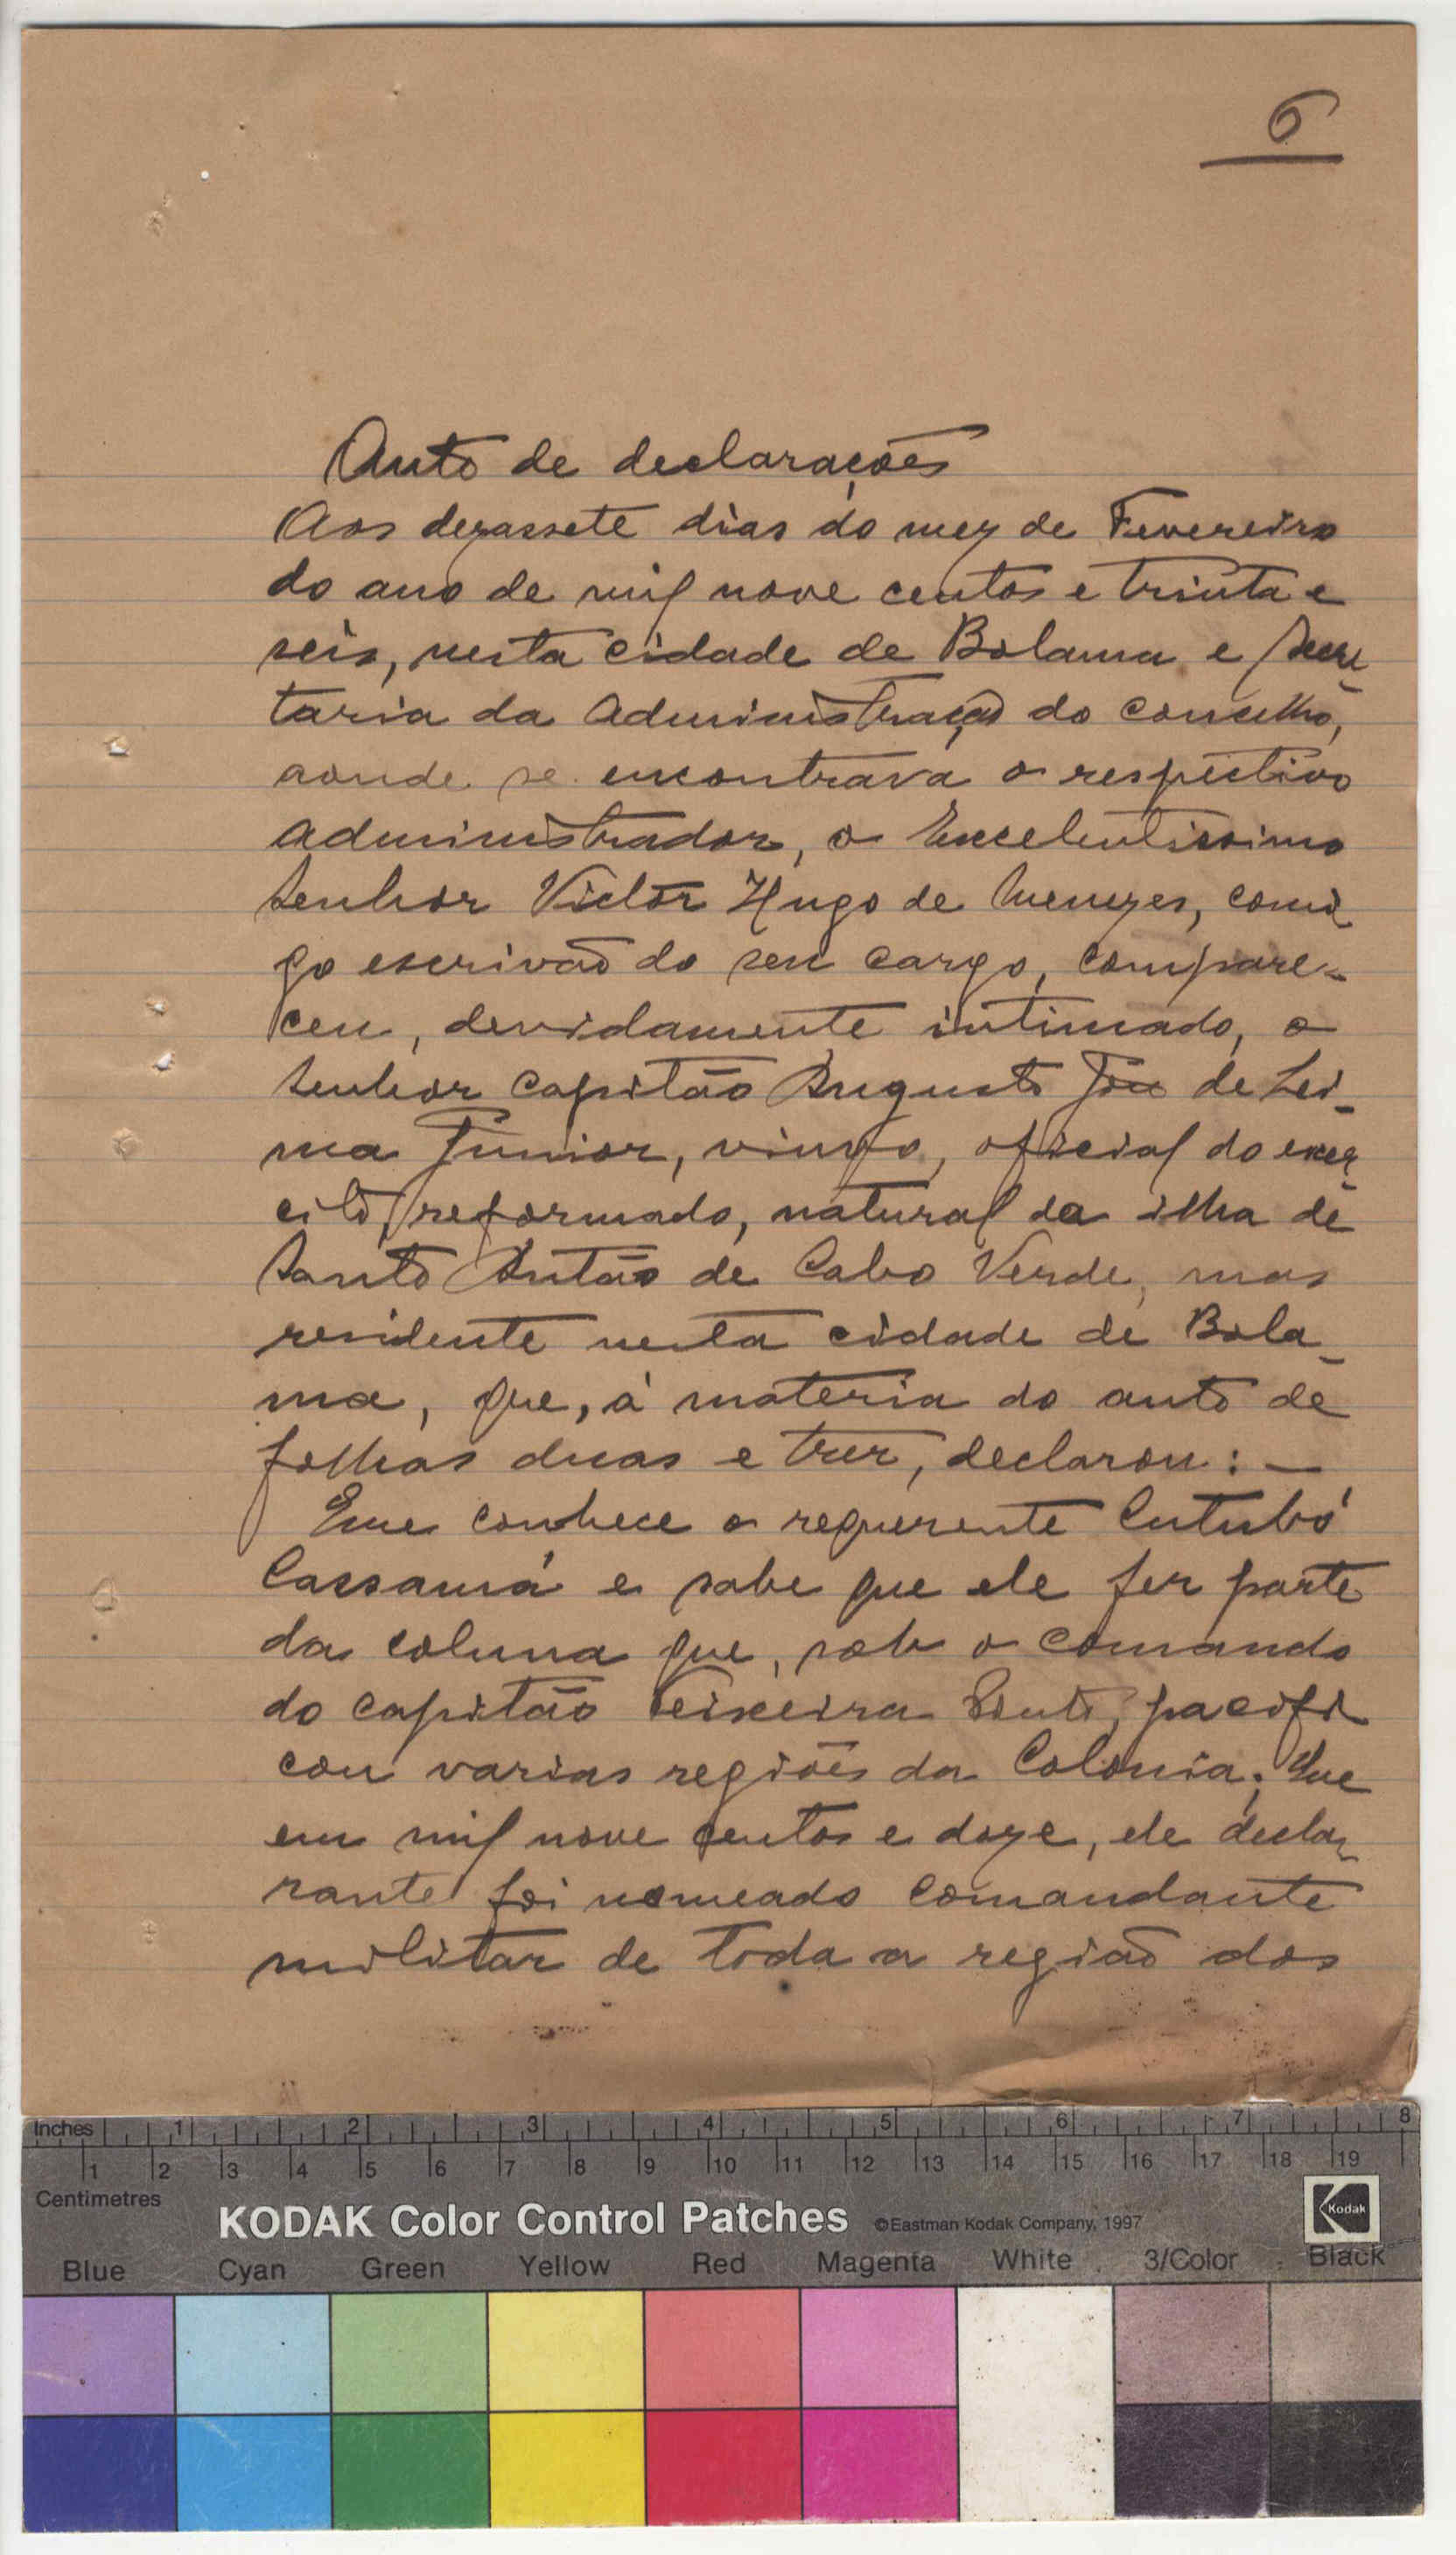 6
Auto de declarações
Aos dezassete dias do mez de Fevereiro
do ano de mil nove centos e trinta e
seis, nesta cidade de Bolama e Secre-
taria da Administração do concelho,
aonde se encontrava o respectivo
administrador, o Excelentissimo
Senhor Victor Hugo de Menezes, comi-
go escrivão do seu cargo, compare-
ceu, devidamente intimado, o
Senhor capitão Augusto José de Lei-
ma Junior, viuvo, oficial do exer-
cito, reformado, natural da ilha de
Santo Antão de Cabo Verde, mas
residente nesta cidade de Bola-
ma, que, á materia do auto de
folhas duas e trez, declarou: —
Que conhece o requerente Cutubó
Cassamá e sabe que ele fez parte
da coluna que, sob o comando
do capitão Teixeira Pinto, pacifi-
cou varias regiões da Colonia; Que
em mil nove centos e doze, ele decla-
rante foi nomeado comandante
militar de toda a região dos
Inches 1 2 3 4 5 6 7 8
1 2 3 4 5 6 7 8 9 10 11 12 13 14 15 16 17 18 19
Centimetres
KODAK Color Control Patches ©Eastman Kodak Company, 1997 Kodak
Blue Cyan Green Yellow Red Magenta White 3/Color Black